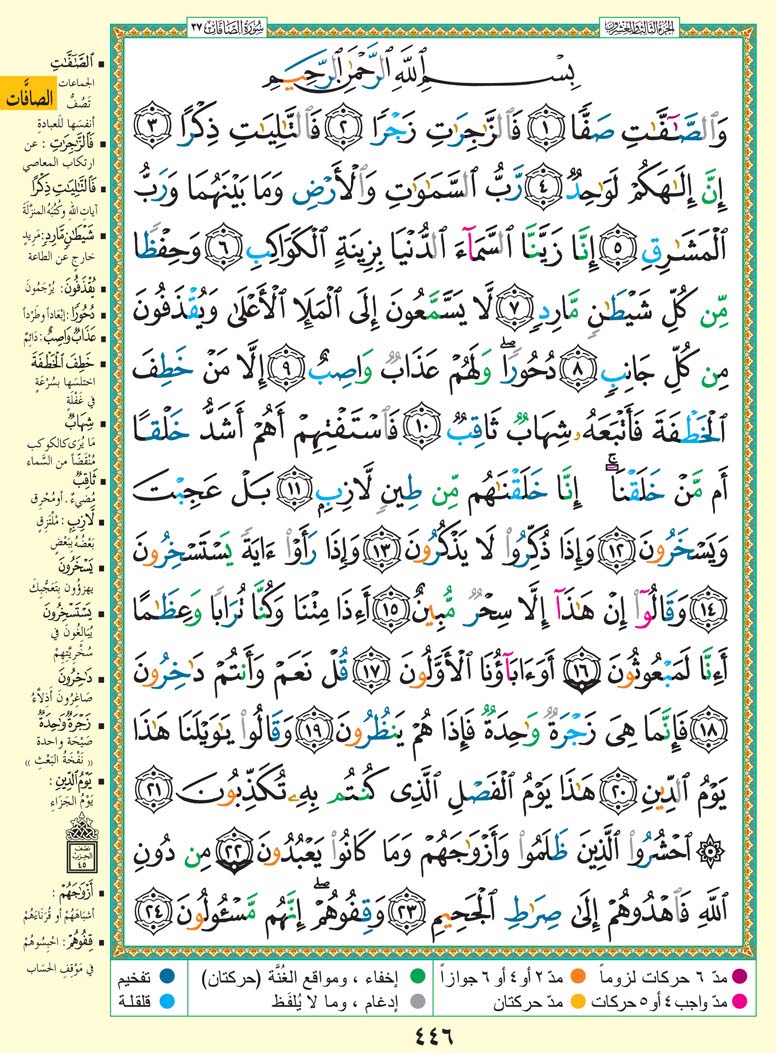 الجزء الثالث والعشرون
سورة الصافات ٣٧
بِسْمِ ٱللَّهِ ٱلرَّحْمَٰنِ ٱلرَّحِيمِ
وَٱلصَّٰٓفَّٰتِ صَفًّا ١ فَٱلزَّٰجِرَٰتِ زَجْرًا ٢ فَٱلتَّٰلِيَٰتِ ذِكْرًا ٣
إِنَّ إِلَٰهَكُمْ لَوَٰحِدٌ ٤ رَّبُّ ٱلسَّمَٰوَٰتِ وَٱلْأَرْضِ وَمَا بَيْنَهُمَا وَرَبُّ
ٱلْمَشَٰرِقِ ٥ إِنَّا زَيَّنَّا ٱلسَّمَآءَ ٱلدُّنْيَا بِزِينَةٍ ٱلْكَوَاكِبِ ٦ وَحِفْظًا
مِّن كُلِّ شَيْطَٰنٍ مَّارِدٍ ٧ لَّا يَسَّمَّعُونَ إِلَى ٱلْمَلَإِ ٱلْأَعْلَىٰ وَيُقْذَفُونَ
مِن كُلِّ جَانِبٍ ٨ دُحُورًا ۖ وَلَهُمْ عَذَابٌ وَاصِبٌ ٩ إِلَّا مَنْ خَطِفَ
ٱلْخَطْفَةَ فَأَتْبَعَهُۥ شِهَابٌ ثَاقِبٌ ١٠ فَٱسْتَفْتِهِمْ أَهُمْ أَشَدُّ خَلْقًا
أَم مَّنْ خَلَقْنَآ ۚ إِنَّا خَلَقْنَٰهُم مِّن طِينٍ لَّازِبٍۭ ١١ بَلْ عَجِبْتَ
وَيَسْخَرُونَ ١٢ وَإِذَا ذُكِّرُوا۟ لَا يَذْكُرُونَ ١٣ وَإِذَا رَأَوْا۟ ءَايَةً يَسْتَسْخِرُونَ
١٤ وَقَالُوٓا۟ إِنْ هَٰذَآ إِلَّا سِحْرٌ مُّبِينٌ ١٥ أَءِذَا مِتْنَا وَكُنَّا تُرَابًا وَعِظَٰمًا
أَءِنَّا لَمَبْعُوثُونَ ١٦ أَوَءَابَآؤُنَا ٱلْأَوَّلُونَ ١٧ قُلْ نَعَمْ وَأَنتُمْ دَٰخِرُونَ
١٨ فَإِنَّمَا هِىَ زَجْرَةٌ وَٰحِدَةٌ فَإِذَا هُمْ يَنظُرُونَ ١٩ وَقَالُوا۟ يَٰوَيْلَنَا هَٰذَا
يَوْمُ ٱلدِّينِ ٢٠ هَٰذَا يَوْمُ ٱلْفَصْلِ ٱلَّذِى كُنتُم بِهِۦ تُكَذِّبُونَ ٢١
۞ ٱحْشُرُوا۟ ٱلَّذِينَ ظَلَمُوا۟ وَأَزْوَٰجَهُمْ وَمَا كَانُوا۟ يَعْبُدُونَ ٢٢ مِن دُونِ
ٱللَّهِ فَٱهْدُوهُمْ إِلَىٰ صِرَٰطِ ٱلْجَحِيمِ ٢٣ وَقِفُوهُمْ ۖ إِنَّهُم مَّسْـُٔولُونَ ٢٤
ٱلصَّٰٓفَّٰتِ
الجماعات
تَصُفُّ
أنفسَها للعبادةِ
الصافَّات
فَٱلزَّٰجِرَٰتِ : عن
ارتكاب المعاصي
فَٱلتَّٰلِيَٰتِ ذِكْرًا
آيات الله وكُتُبَه المنزّلة
شَيْطَٰنٍ مَّارِدٍ: مَريدٍ
خارج عن الطاعة
يُقْذَفُونَ: يُرْجَمُونَ
دُحُورًا : إبْعَاداً وطَرْداً
عَذَابٌ وَاصِبٌ: دَائِمٌ
خَطِفَ ٱلْخَطْفَةَ
اختلسَها بسُرْعَةٍ
في غَفْلَةٍ
شِهَابٌ
مَا يُرَى كالكوكب
مُنْقَضّاً من السَّماء
ثَاقِبٌ
مُضيءٌ . أو مُحْرِق
لَّازِبٍ : مُلْتَزِقٍ
بَعْضُهُ بِبَعْضٍ
يَسْخَرُونَ
يهزؤون بتَعَجُّبِكَ
يَسْتَسْخِرُونَ
يُبَالغُونَ في
سُخْرِيَّتِهِمْ
دَٰخِرُونَ
صَاغِرُونَ أذلاَّءُ
زَجْرَةٌ وَٰحِدَةٌ
صَيْحَة واحدة
« نَفْخَةُ البَعْث »
يَوْمُ ٱلدِّينِ :
يَوْمُ الجَزَاء
نصف
الحزب
٤٥
أَزْوَٰجَهُمْ :
أشبَاهَهُمْ أو قُرَنَاءَهُمْ
قِفُوهُمْ: احبِسُوهُمْ
في مَوْقِفِ الحساب
مدّ ٦ حركات لزوماً
مدّ ٢ أو ٤ أو ٦ جوازاً
إخفاء ، ومواقع الغُنَّة (حركتان)
تفخيم
مدّ واجب ٤ أو ٥ حركات
مدّ حركتان
إدغام ، وما لا يُلفَظ
قلقلة
٤٤٦